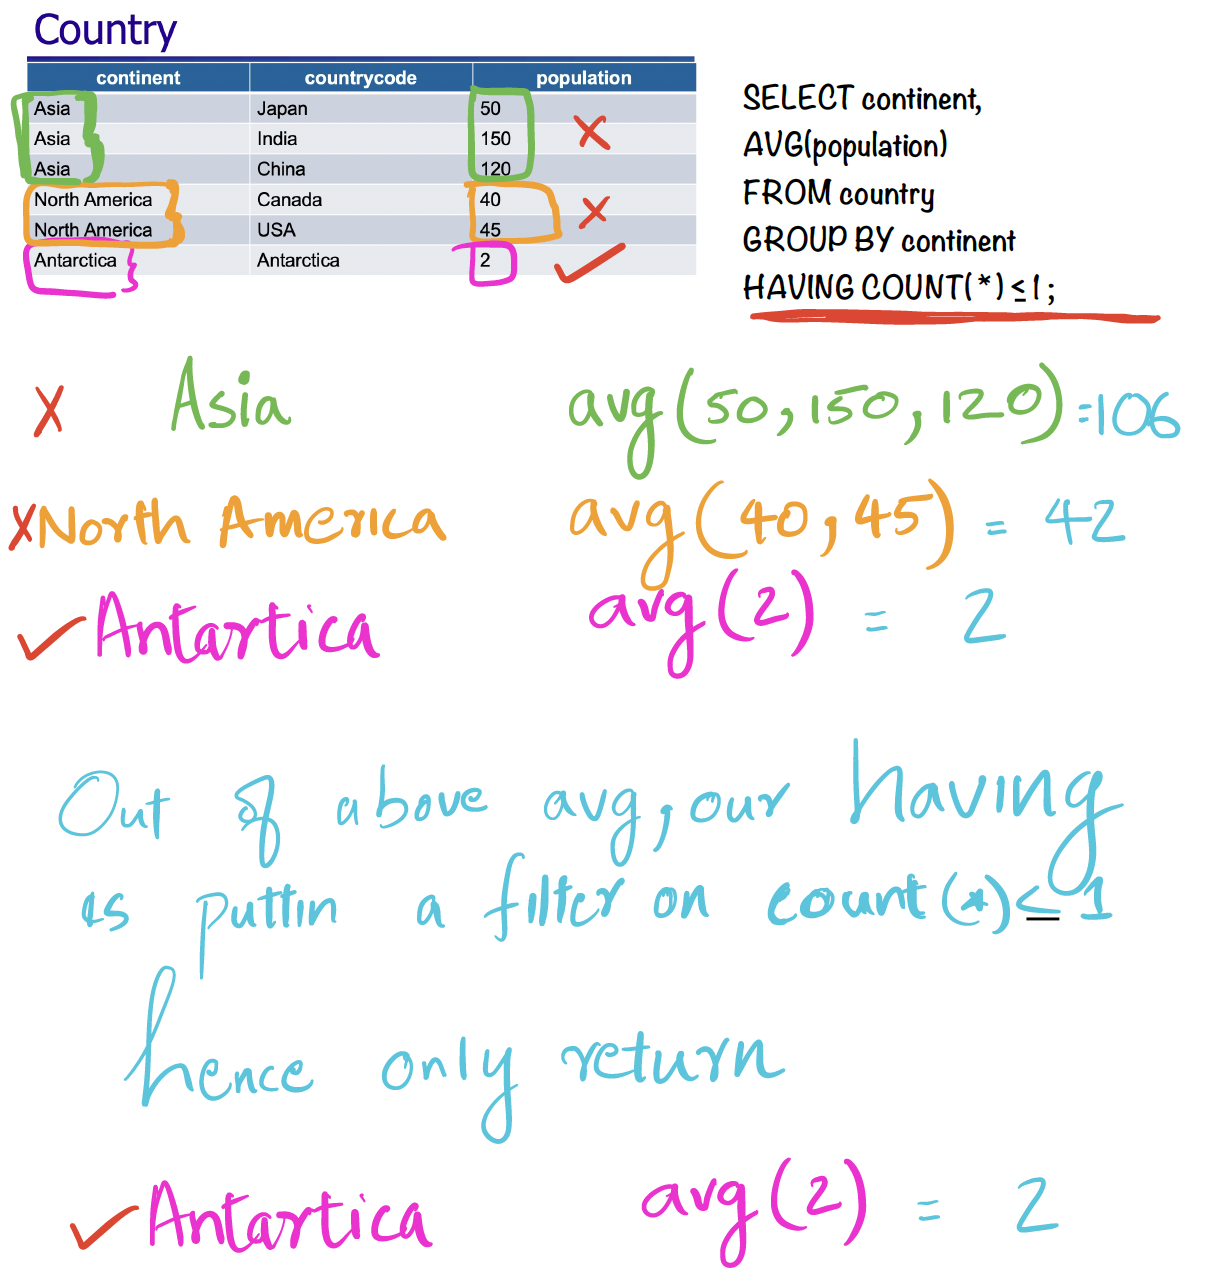 Country
continent countrycode population
Asia Japan 50
Asia India 150
Asia China 120
North America Canada 40
North America USA 45
Antarctica Antarctica 2
SELECT continent,
AVG(population)
FROM country
GROUP BY continent
HAVING COUNT(*) ≤ 1;
X Asia avg(50, 150, 120) = 106
X North America avg(40, 45) = 42
✓ Antartica avg(2) = 2
Out of above avg, our having
is puttin a filter on count(*) ≤ 1
hence only return
✓ Antartica avg(2) = 2